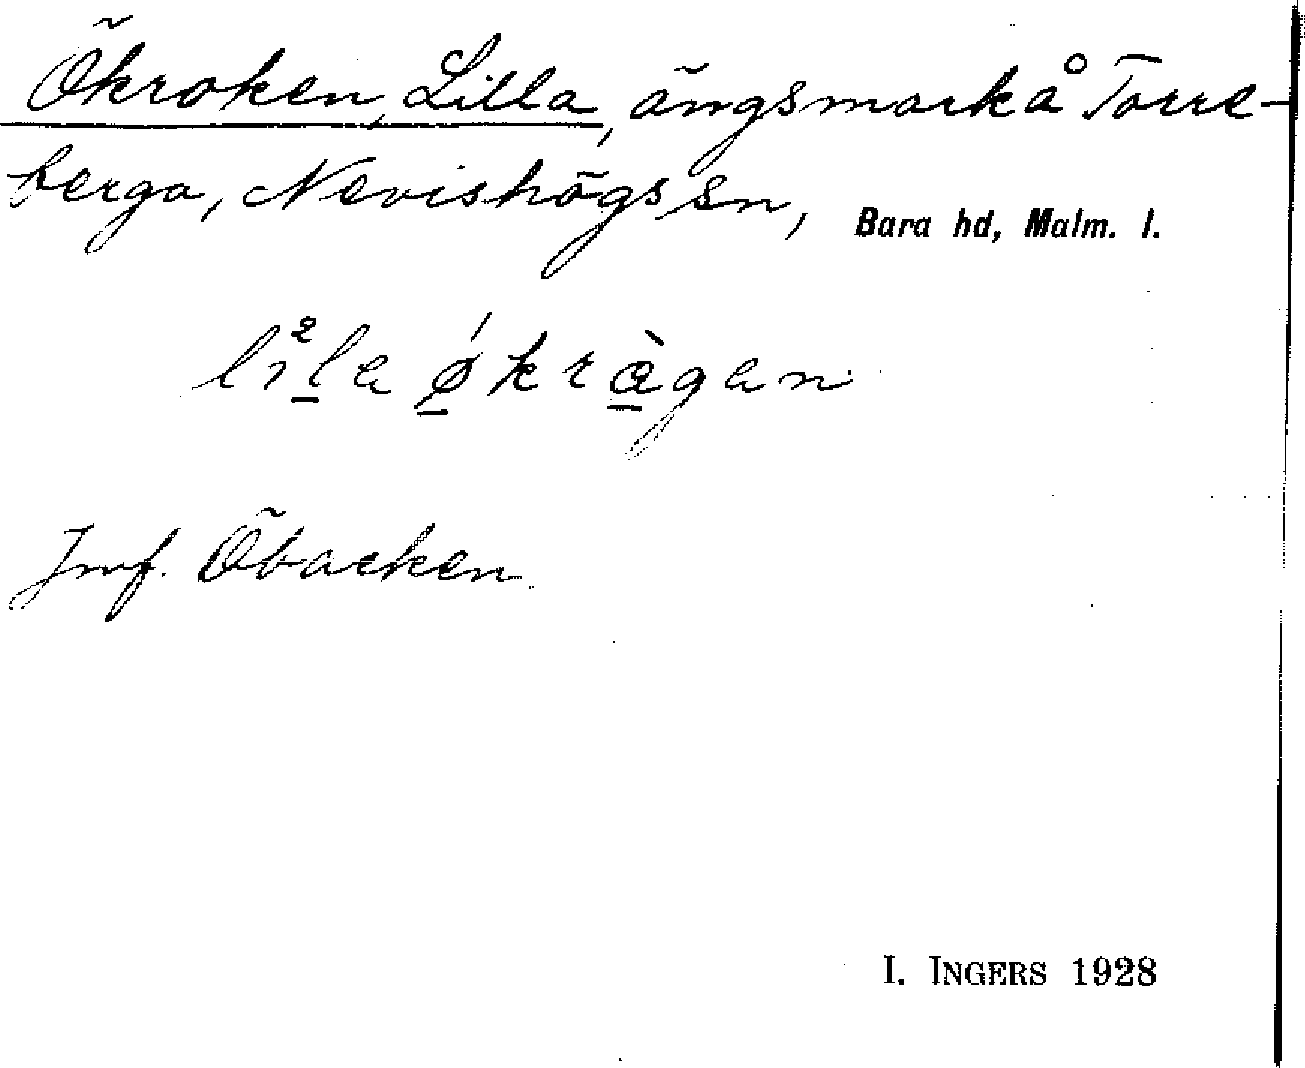 Ökroken, Lilla, ängsmark å Torre-
berga, Nevishögs sn, Bara hd, Malm. l.
li²la ǿkràgan
Jmf. Öbacken.
I. INGERS 1928